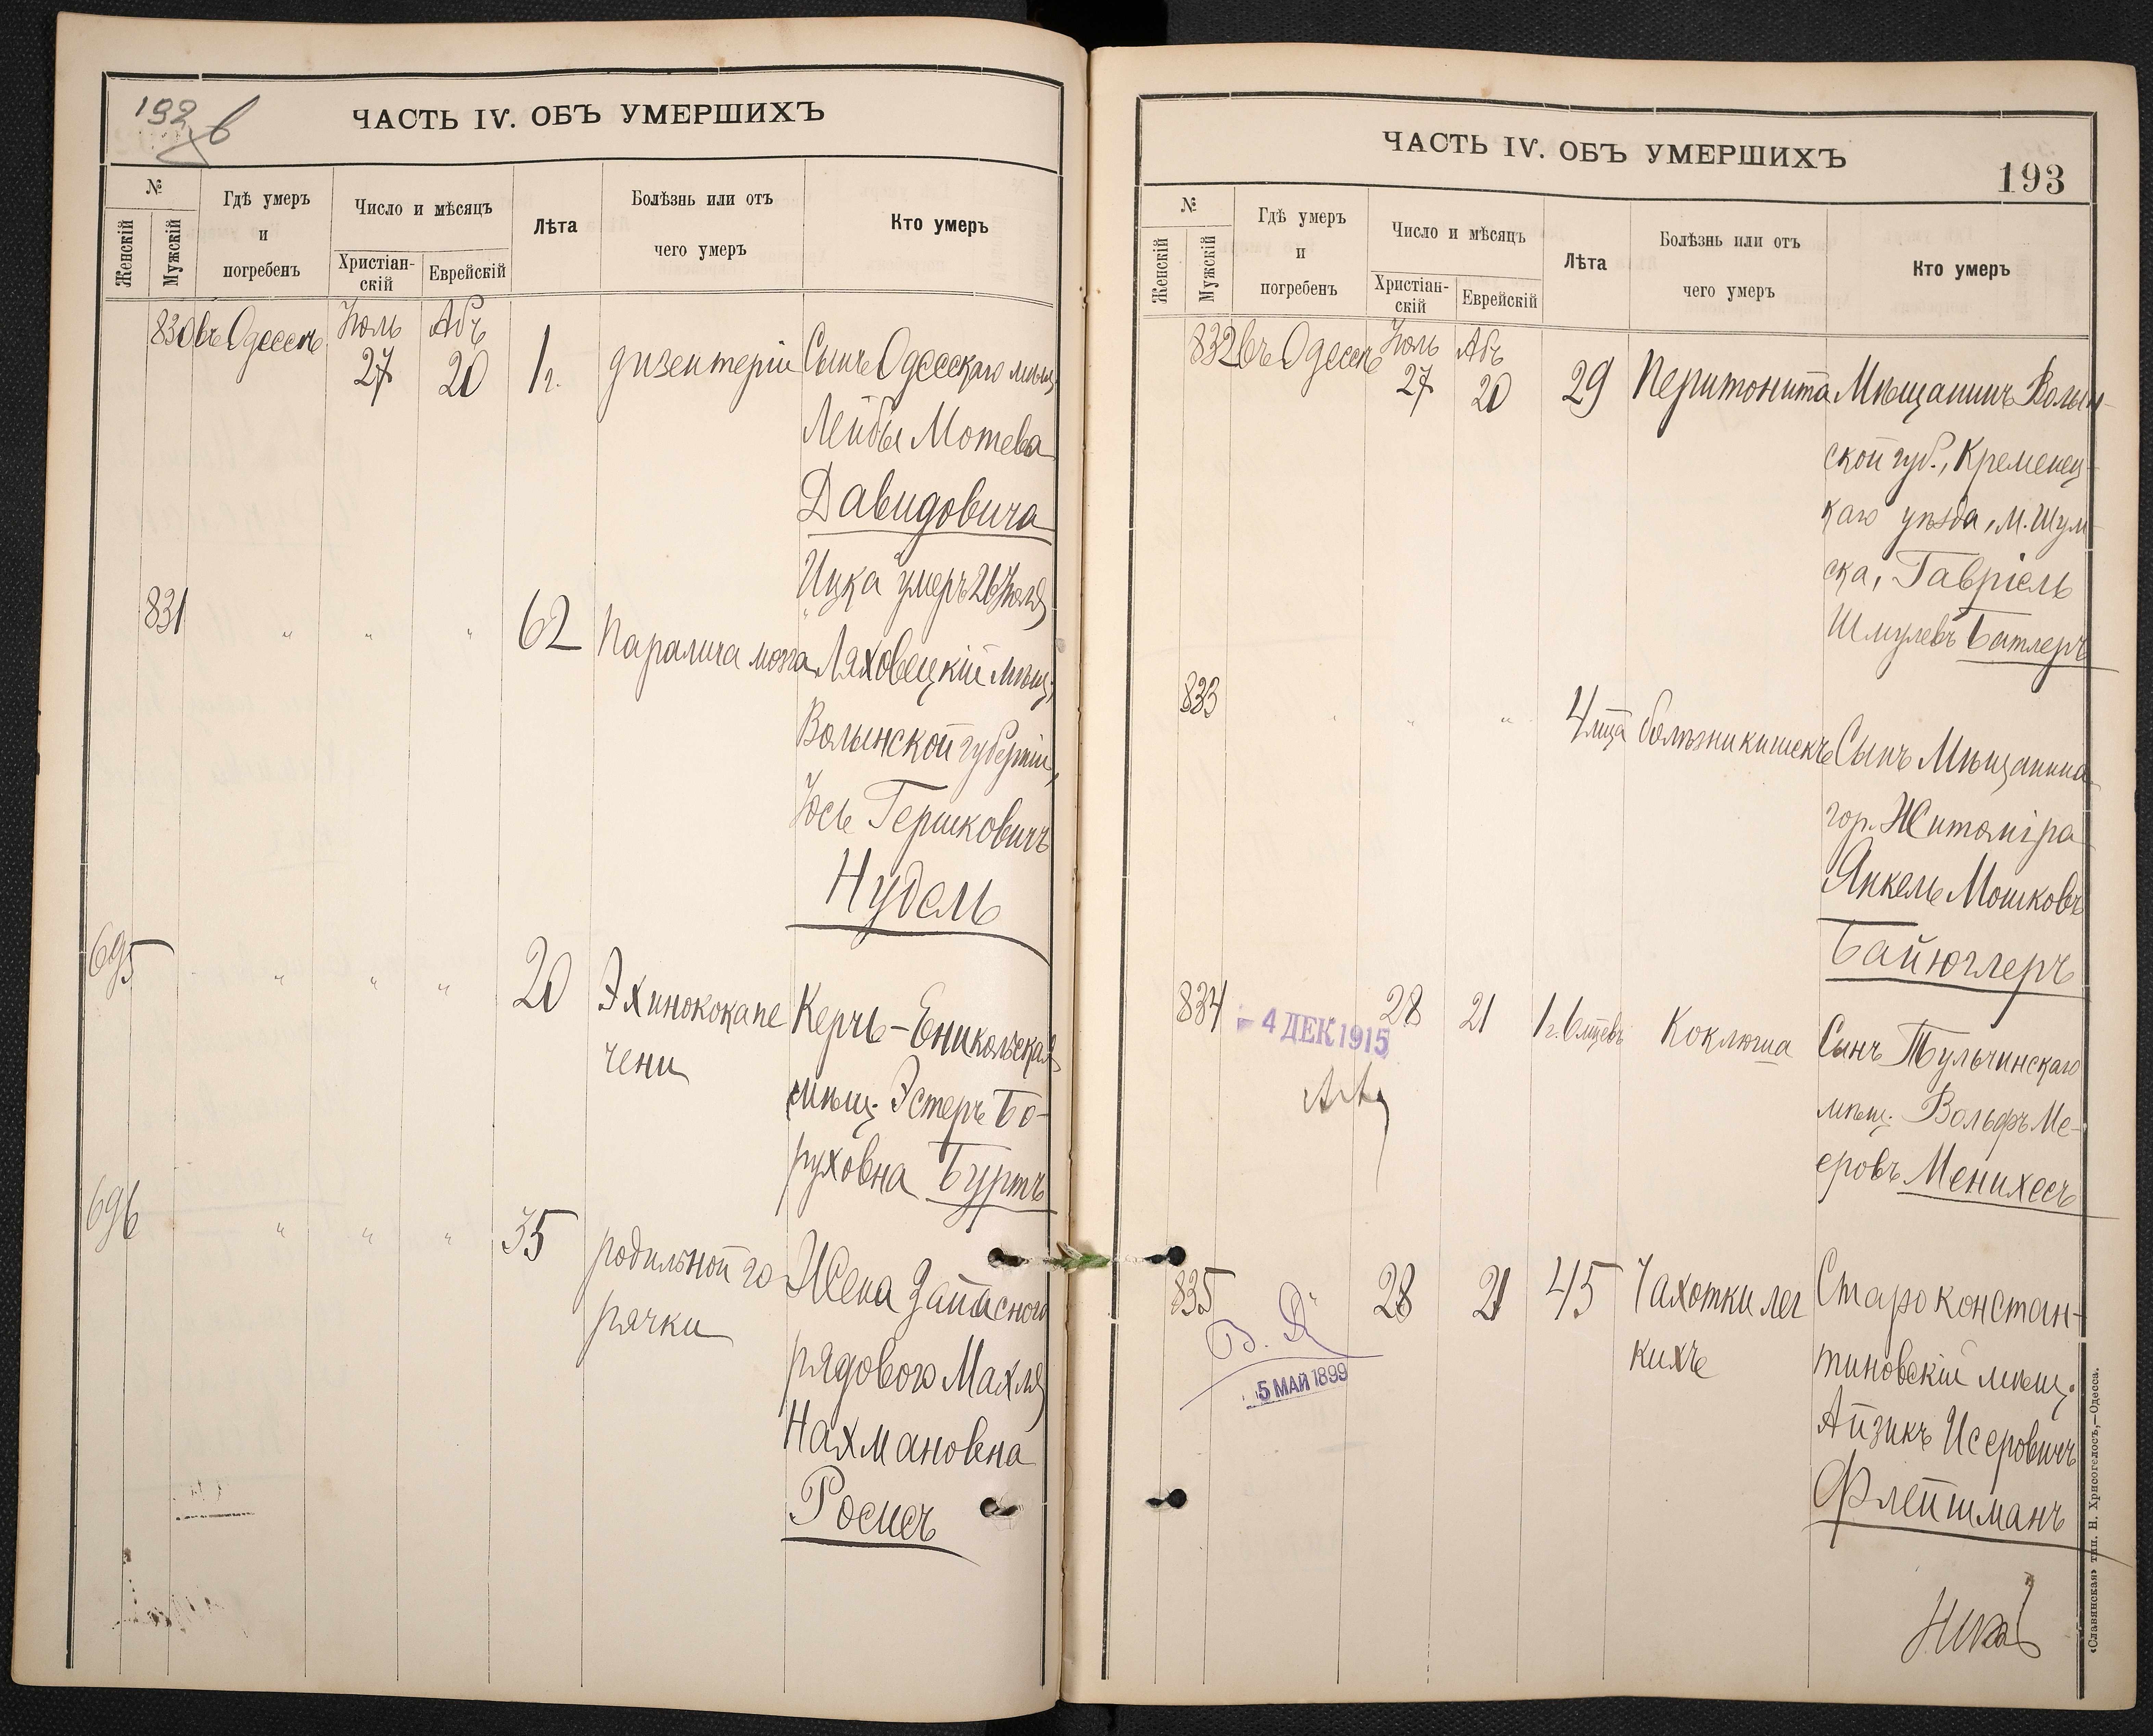 192 в
ЧАСТЬ IV. ОБЪ УМЕРШИХЪ
№
Женскій
Мужскій
Гдѣ умеръ
и
погребенъ
Число и мѣсяцъ
Христіан-
скій
Еврейскій
Лѣта
Болѣзнь или отъ
чего умеръ
Кто умеръ
830 въ Одессѣ Іюль 27 Абъ 20 1 г. дизентеріи Сынъ Одесскаго мѣщ.
Лейбы Мотева
Давидовича
Ицка умеръ 26 Іюля
831 " " " 62 Паралича мозга Ляховецкій мѣщ.,
Волынской губерніи,
Іось Гершковичъ
Нудель
695 " " " 20 Эхинококка пе
чени
Керчь-Еникольская
мѣщ. Эстеръ Бо-
руховна Буртъ
696 " " " 35 родильной го
рячки
Жена Запаснаго
рядового Махля
Нахмановна
Роемсъ
ЧАСТЬ IV. ОБЪ УМЕРШИХЪ
193
№
Женскій
Мужскій
Гдѣ умеръ
и
погребенъ
Число и мѣсяцъ
Христіан-
скій
Еврейскій
Лѣта
Болѣзнь или отъ
чего умеръ
Кто умеръ
832 въ Одессѣ Іюль 27 Абъ 20 29 Перитонита Мѣщанинъ Волын-
ской губ., Кременец-
каго уѣзда, м. Шум-
ска, Гавріель
Шмулевъ Батлеръ
833 " " " 4 мца болѣзни кишекъ Сынъ Мѣщанина
гор. Житоміра
Янкель Мошковъ
Байюглеръ
834 28 21 1 г. 6 мцевъ Коклюша Сынъ Тульчинскаго
мѣщ. Вольфъ Ме-
еровъ Менихесъ
- 4 ДЕК 1915
835 " 28 21 45 Чахотки лег
кихъ
Староконстан-
тиновскій мѣщ.
Айзикъ Исеровичъ
Флейшманъ
В. Д.
5 МАЙ 1899
«Славянская» тип. Н. Хрисогелосъ,—Одесса.